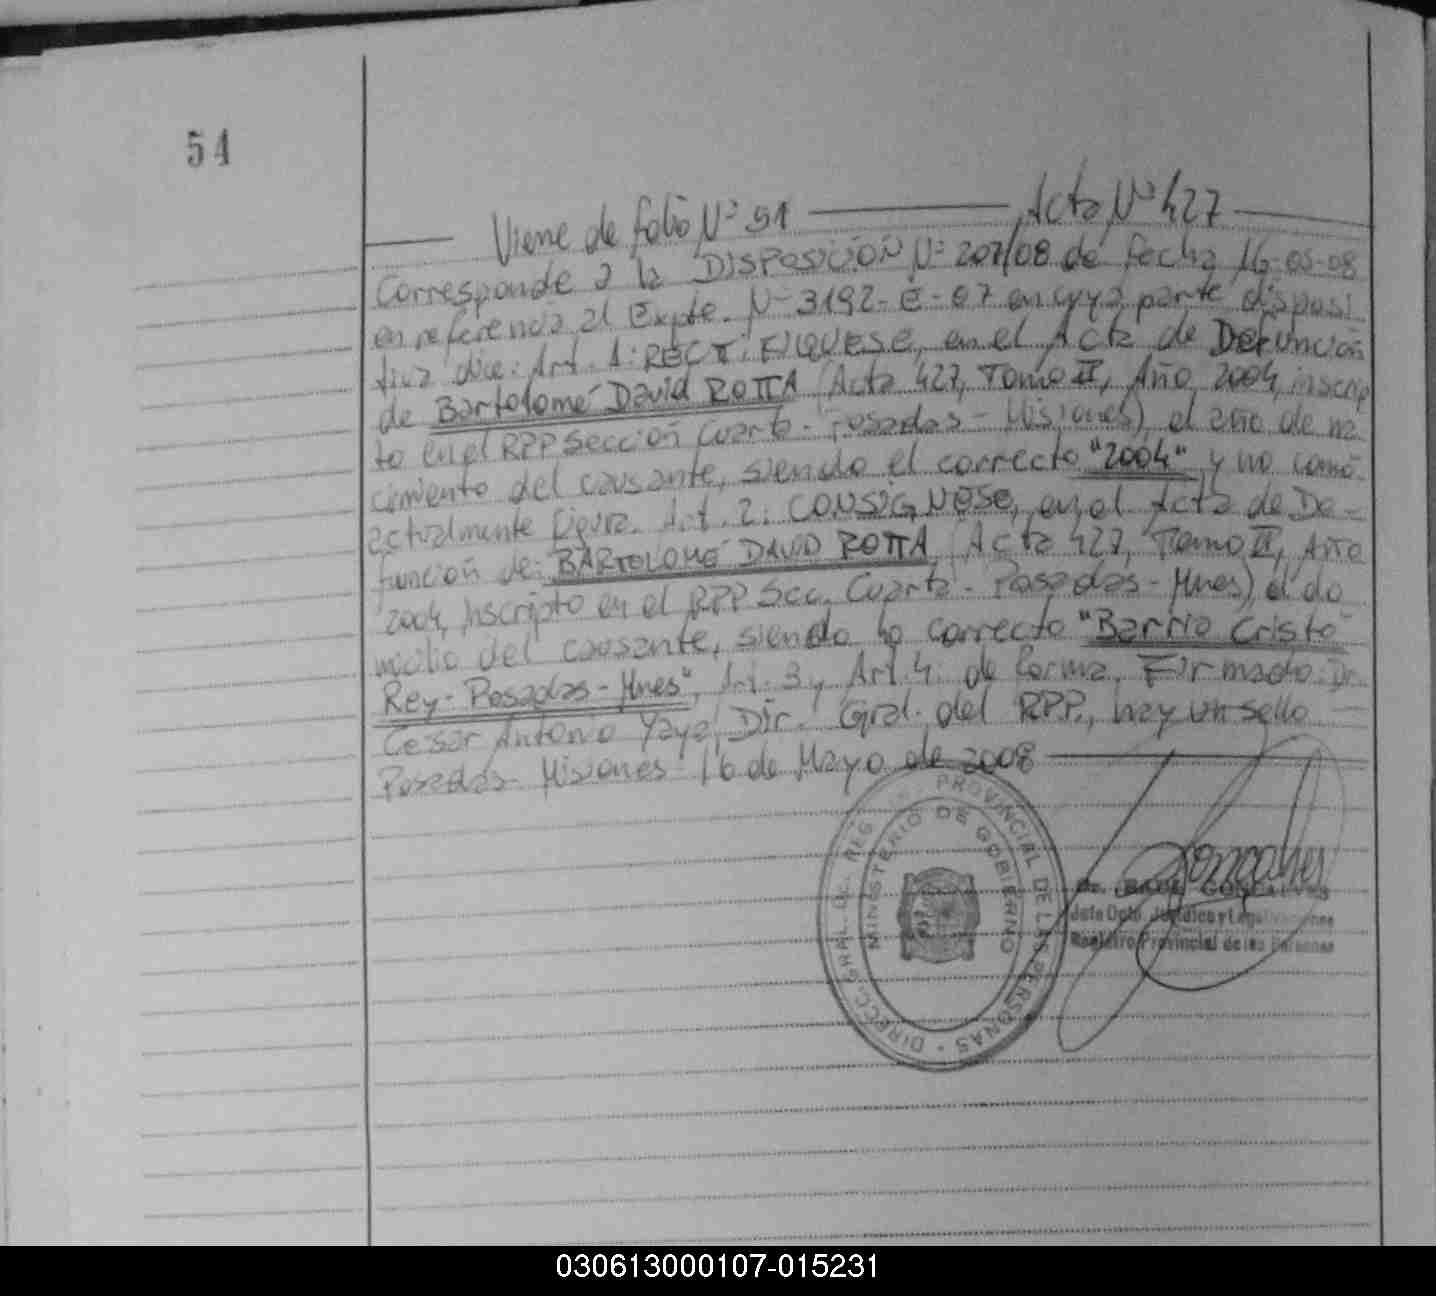 54
Viene de folio Nº 51 Acta Nº 427
Corresponde a la DISPOSICIÓN Nº 207/08 de fecha 16-05-08
en referencia al Expte. Nº 3192-E-07 en cuya parte disposi
tiva dice: Art. 1: RECTIFIQUESE, en el Acta de Defunción
de Bartolomé David ROTTA (Acta 427, Tomo II, Año 2004, inscrip
to en el RPP Sección Cuarta - Posadas - Misiones), el año de na
cimiento del causante, siendo el correcto "2004" y no como
actualmente figura. Art. 2: CONSIGNESE, en el Acta de De-
función de: BARTOLOMÉ DAVID ROTTA (Acta 427, Tomo II, Año
2004, Inscripto en el RPP Secc. Cuarta - Posadas - Mnes), el do
micilio del causante, siendo lo correcto "Barrio Cristo
Rey - Posadas - Mnes", Art. 3 y Art. 4: de forma. Firmado: Dr.
Cesar Antonio Yaya, Dir. Gral. del RPP., hay un sello
Posadas Misiones 16 de Mayo de 2008
DIRECC. GRAL. DEL REG. PROVINCIAL DE LAS PERSONAS
MINISTERIO DE GOBIERNO
GONCALVES
Jefe Dpto. Jurídico y
Registro Provincial de las Personas
030613000107-015231